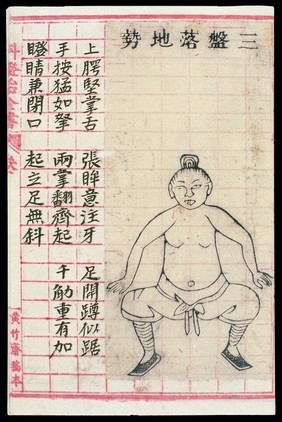 三盤落地勢
上腭堅掌舌 張眸意注牙 足開蹲似踞
手按猛如拏 兩掌翻齊起 千觔重有加
瞪睛兼閉口 起立足無斜
科證治全書
黃竹齋稿本